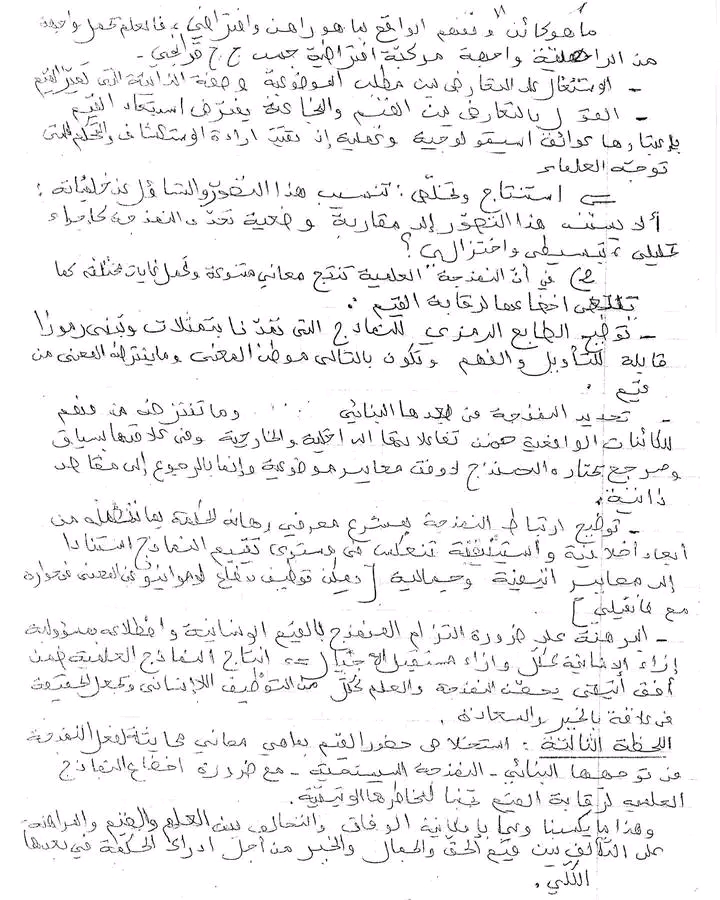 ما هو كائن" وتفهم الواقع بما هو راهن وافتراضي، فالمعلم يحمل واجهة
من الراهنية واجهة مركبة افتراضية حسب ج.ج قرانجي.
- الاشتغال على التعارض بين مطلب الموضوعية وصفة الذاتية التي تميز القيم
- القول بالتعارض بين القيم والنمذجة يفترض استبعاد القيم
باعتبارها عوائق ابستمولوجية وعملية إذ تقيد ارادة الاستكشاف والتحكم التي
توجه العلماء
=> استنتاج وتخلص: تنسيب هذا التصور والتساؤل عن خلفياته:
ألا يستند هذا التصور إلى مقاربة وضعية تحدد النمذجة كإجراء
تحليلي، تبسيطي واختزالي؟
2) في أنّ النمذجة العلمية تنتج معاني متنوعة وتحمل غايات مختلفة مما
يقتضي اخضاعها لرقابة القيم:
- توضيح الطابع الرمزي للنماذج التي تمدّنا بتمثلات وتبني رموزا
قابلة للتأويل والفهم وتكون بالتالي موطن المعنى وما يفترضه المعنى من
قيم.
- تحديد النمذجة في بعدها البنائي .... وما تفترضه من فهم
للكائنات الواقعية ضمن تفاعلاتها الداخلية والخارجية وفي علاقتها بسياق
ومرجع يختاره المنمذج لا وفق معايير موضوعية وإنما بالرجوع إلى مقاصد
ذاتية.
- توضيح ارتباط النمذجة بمشروع معرفي رهانه الحكمة بما تتضمنه من
أبعاد أخلاقية وأستيتيقية تنعكس في مستوى تقييم النماذج استنادا
إلى معايير اتيقية وجمالية [يمكن توظيف دفاع لوموانيو عن المعنى في حواره
مع مانفيلي]
- البرهنة على ضرورة التزام المنمذج بالقيم الإنسانية واضطلاعه بمسؤولية
إزاء الإنسانية ككل وإزاء مستقبل الأجيال => انتاج النماذج العلمية ضمن
أفق أتيقي يحصّن النمذجة والعلم ككل من التوظيف اللاإنساني ويجعل الحقيقة
في علاقة بالخير والسعادة.
اللحظة الثالثة: استخلاص حضور القيم بما هي معاني محايثة لفعل النمذجة
في توجهها البنائي - النمذجة السيستمية - مع ضرورة اخضاع النماذج
العلمية لرقابة القيم تجنبا لمخاطرها الإيتيقية.
وهذا ما يكسبنا وعيا بإمكانية الوفاق والتحالف بين العلم والقيم والمراهنة
على التأليف بين قيم الحق والجمال والخير من أجل ادراك الحكمة في بعدها
الكلّي.